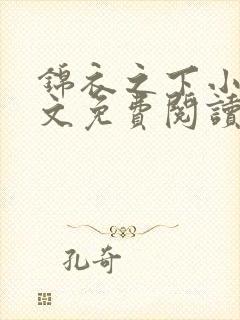 錦衣之下小
文免費閱讀
孔奇